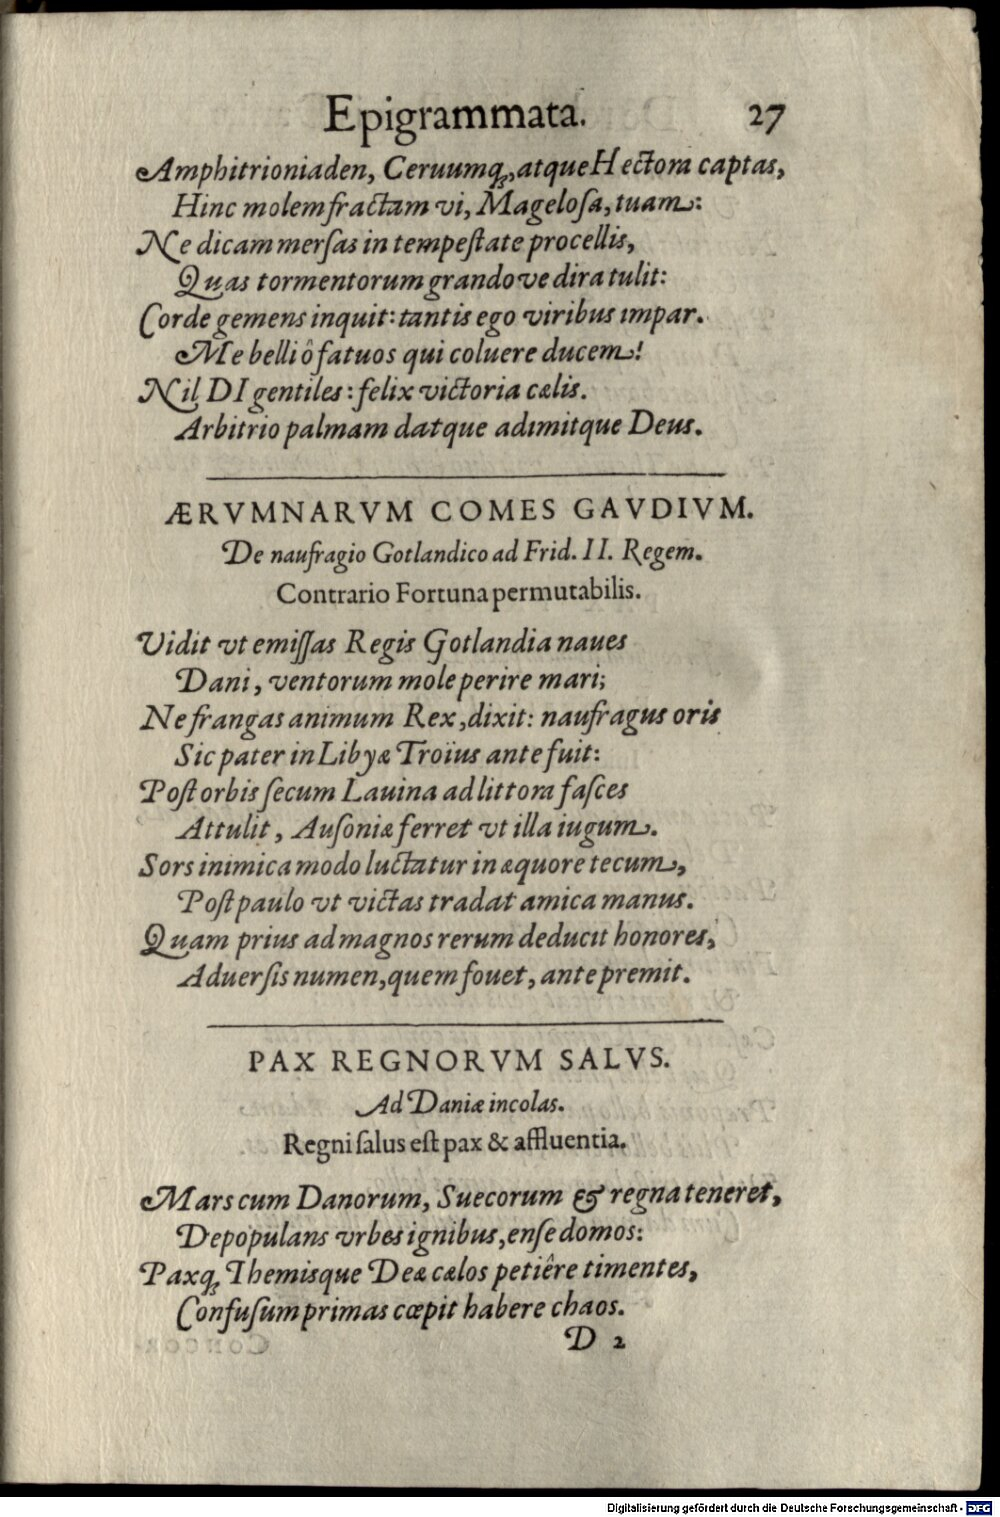 Epigrammata. 27
Amphitrioniaden, Ceruumq́ꝫ, atque Hectora captas,
Hinc molem fractam vi, Mageloſa, tuam:
Ne dicam merſas in tempeſtate procellis,
Quas tormentorum grandove dira tulit:
Corde gemens inquit: tantis ego viribus impar.
Me belli ô fatuos qui coluere ducem!
Nil DI gentiles: felix victoria cælis.
Arbitrio palmam datque adimitque Deus.
ÆRVMNARVM COMES GAVDIVM.
De naufragio Gotlandico ad Frid. II. Regem.
Contrario Fortuna permutabilis.
Vidit vt emiſſas Regis Gotlandia naues
Dani, ventorum mole perire mari;
Ne frangas animum Rex, dixit: naufragus oris
Sic pater in Libyæ Troïus ante fuit:
Poſt orbis ſecum Lauina ad littora faſces
Attulit, Auſoniæ ferret vt illa iugum.
Sors inimica modo luctatur in æquore tecum,
Poſt paulo vt victas tradat amica manus.
Quam prius ad magnos rerum deducit honores,
Aduerſis numen, quem fouet, ante premit.
PAX REGNORVM SALVS.
Ad Daniæ incolas.
Regni ſalus eſt pax & affluentia.
Mars cum Danorum, Suecorum & regna teneret,
Depopulans vrbes ignibus, enſe domos:
Paxqꝫ Themisque Deæ cælos petiêre timentes,
Confuſum primas cœpit habere chaos.
D 2
Digitalisierung gefördert durch die Deutsche Forschungsgemeinschaft - DFG